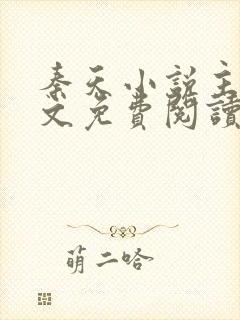 秦天小說主
文免費閱讀
萌二哈